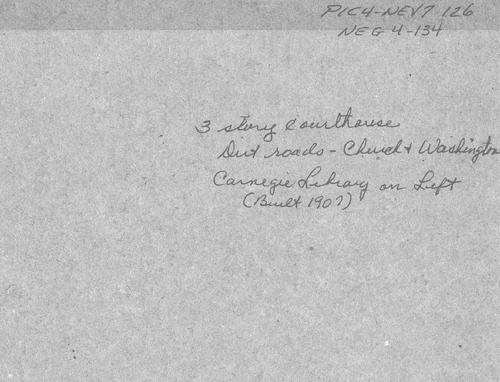 PIC4-NEV7 126
NEG 4-134
3 story Courthouse
Dirt roads - Church & Washington
Carnegie Library on Left
(Built 1907)